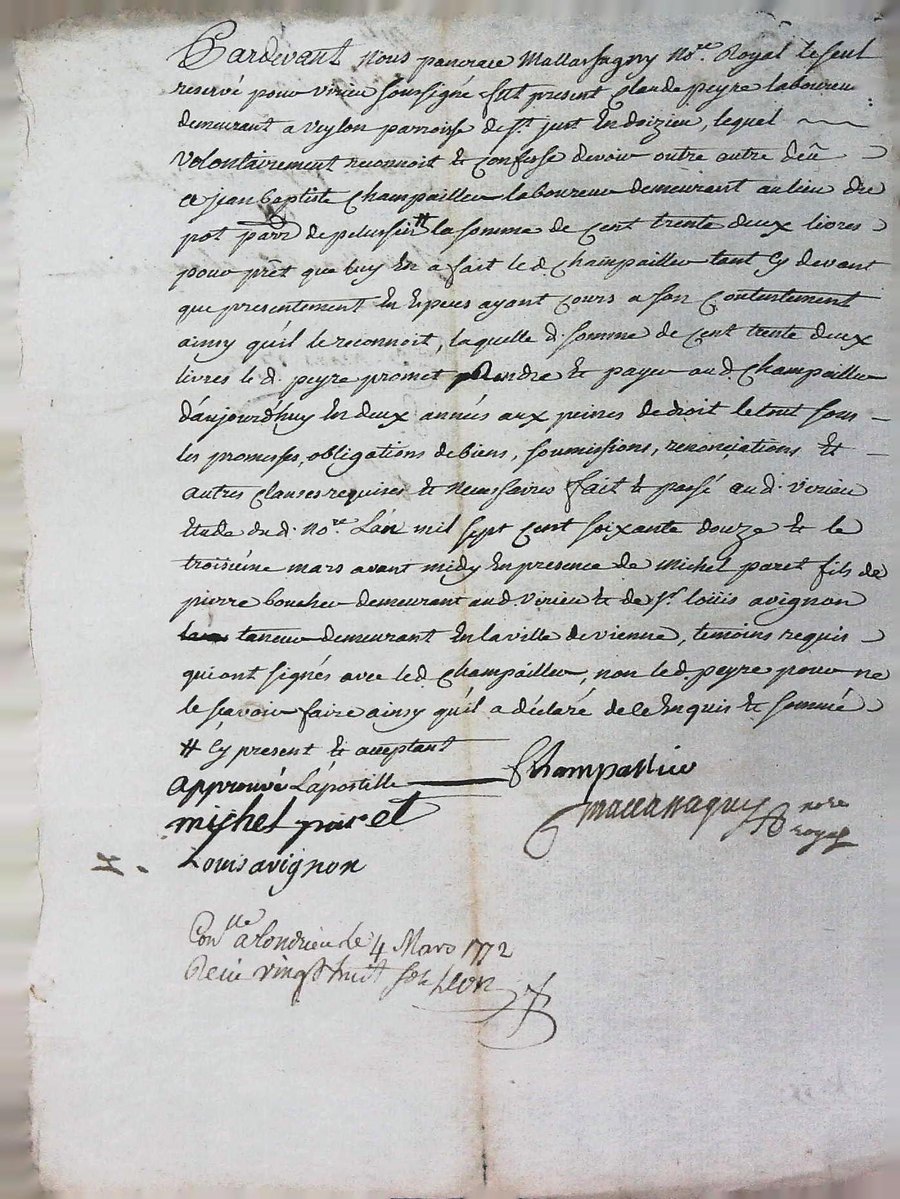 Pardevant Nous pancrace Mallassagny No.re Royal le seul
reservé pour virieu soussigné fut present Claude peyre laboureur
demeurant a veylon parroisse de st. just en doizieu, lequel
volontairement reconnoit & confesse devoir outre autre deü
a jean baptiste Champailler laboureur demeurant au lieu du
pot parr de pelussin # la somme de cent trente deux livres
pour prêt que luy en a fait le d. Champailler tant Cy devant
que presentement en Especes ayant cours a son Contentement
ainsy quil le reconnoit, laquelle d. somme de cent trente deux
livres le d. peyre promet Rendre & payer au d. Champailler
d'aujourd'huy En deux années aux peines de droit le tout sous
les promesses, obligations de biens, soumissions, renonciations &
autres clauses requises & necessaires fait & passé au d. virieu
Etude du d. No.re L'an mil sept cent soixante douze & le
troisieme mars avant midy En presence de Michel paret fils de
pierre boucher demeurant au d. virieu & de sr. loüis avignon
taneur demeurant En la ville de vienne, temoins requis
qui ont signés avec le d. Champailler, non le d. peyre pour ne
le sçavoir faire ainsy quil a déclaré de ce Enquis & sommé
# Cy present & acceptant
approuvé L'apostille Champallier
michel paret
nore royal
Louis avignon
Con.lle a Condrieu le 4 Mars 1772
Reçu vingt huit s. Leon